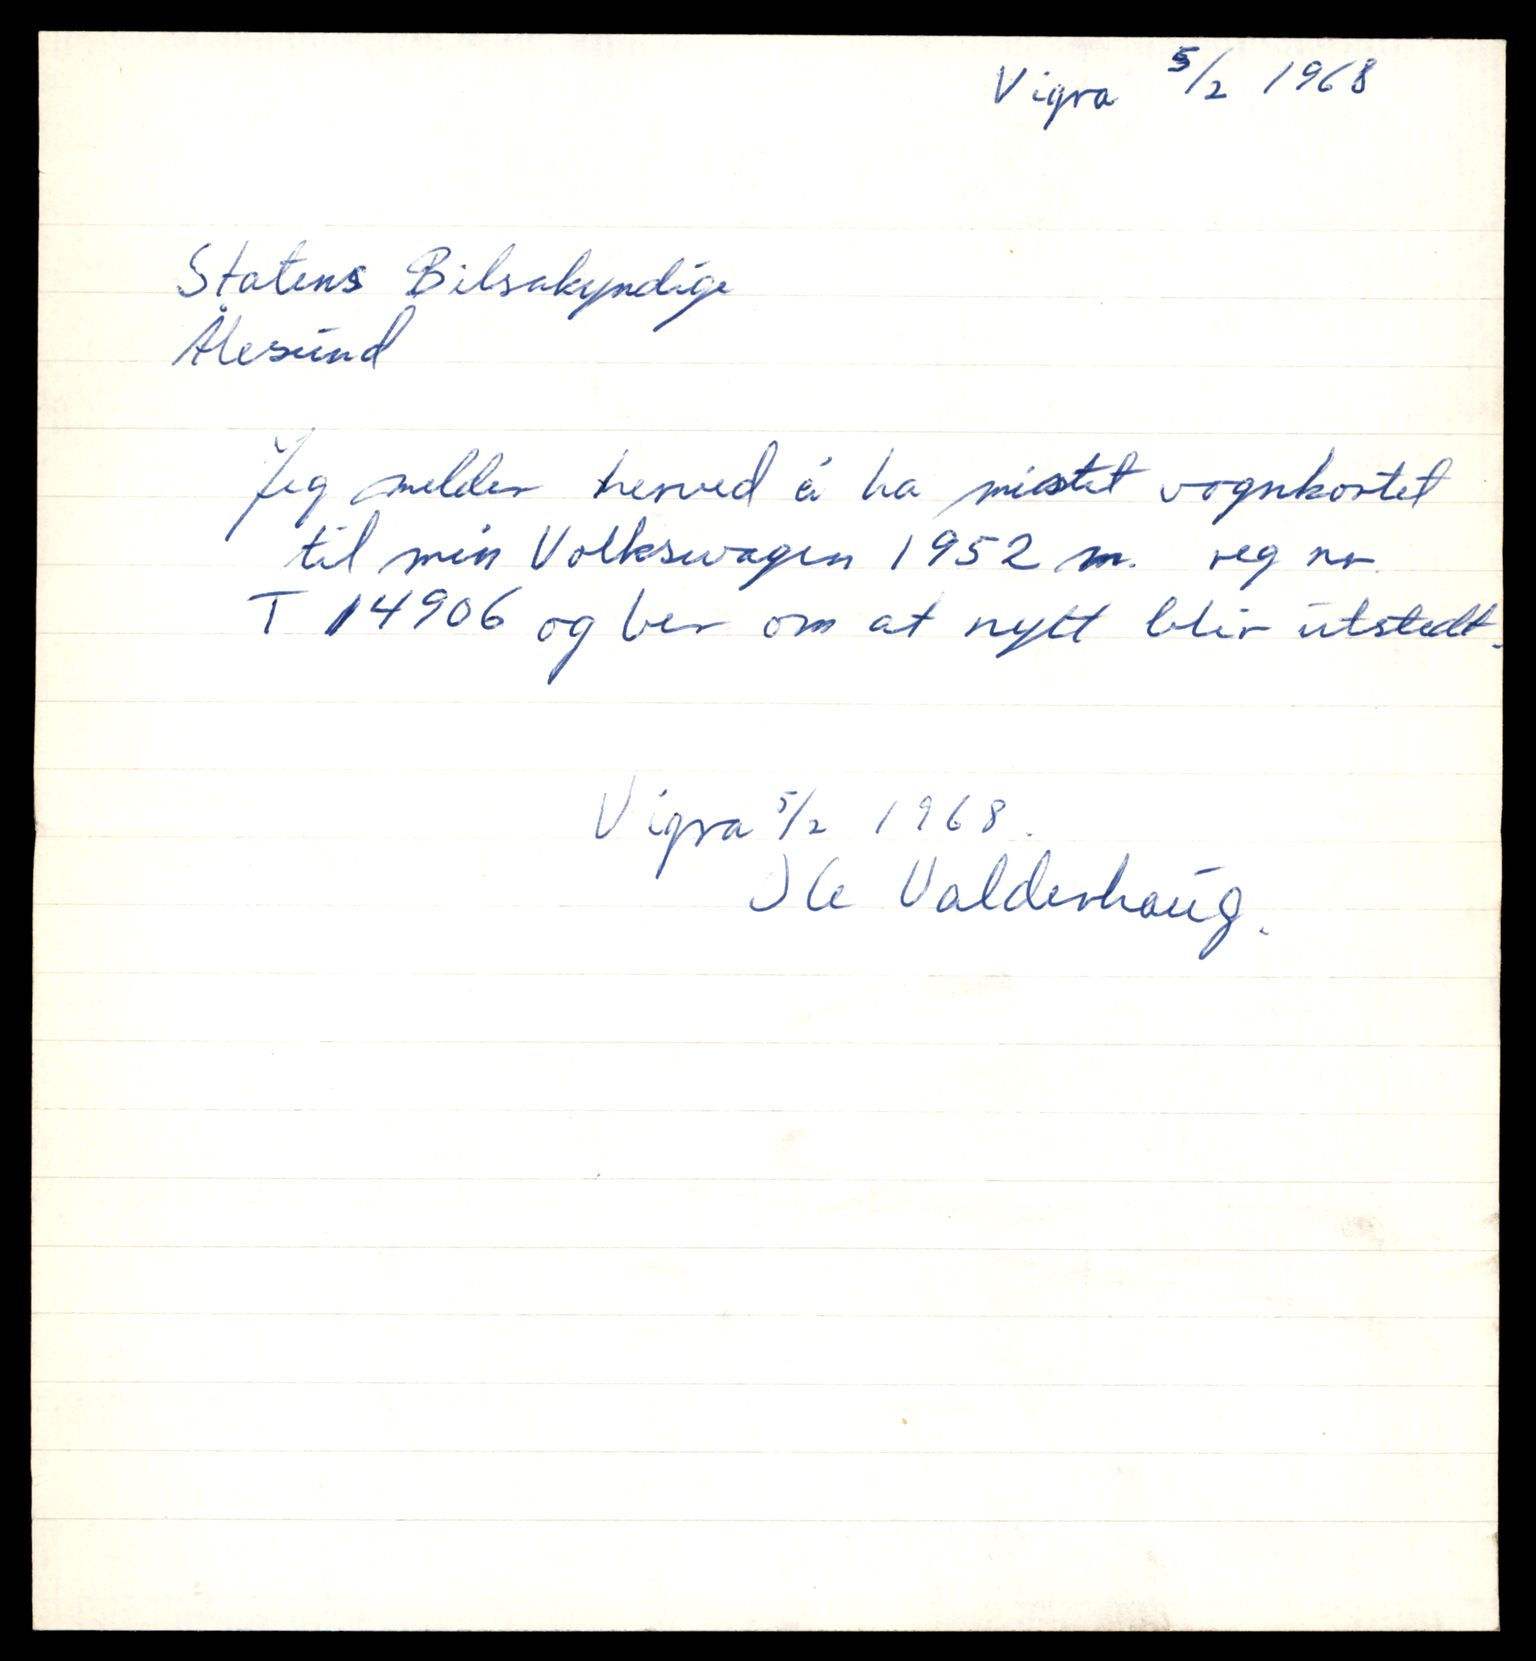 Vigra 5/2 1968
Statens Bilsakyndige
Ålesund
Jeg melder herved å ha mistet vognkortet
til min Volkswagen 1952 m. reg nr.
T 14906 og ber om at nytt blir utstedt.
Vigra 5/2 1968.
Valderhaug.